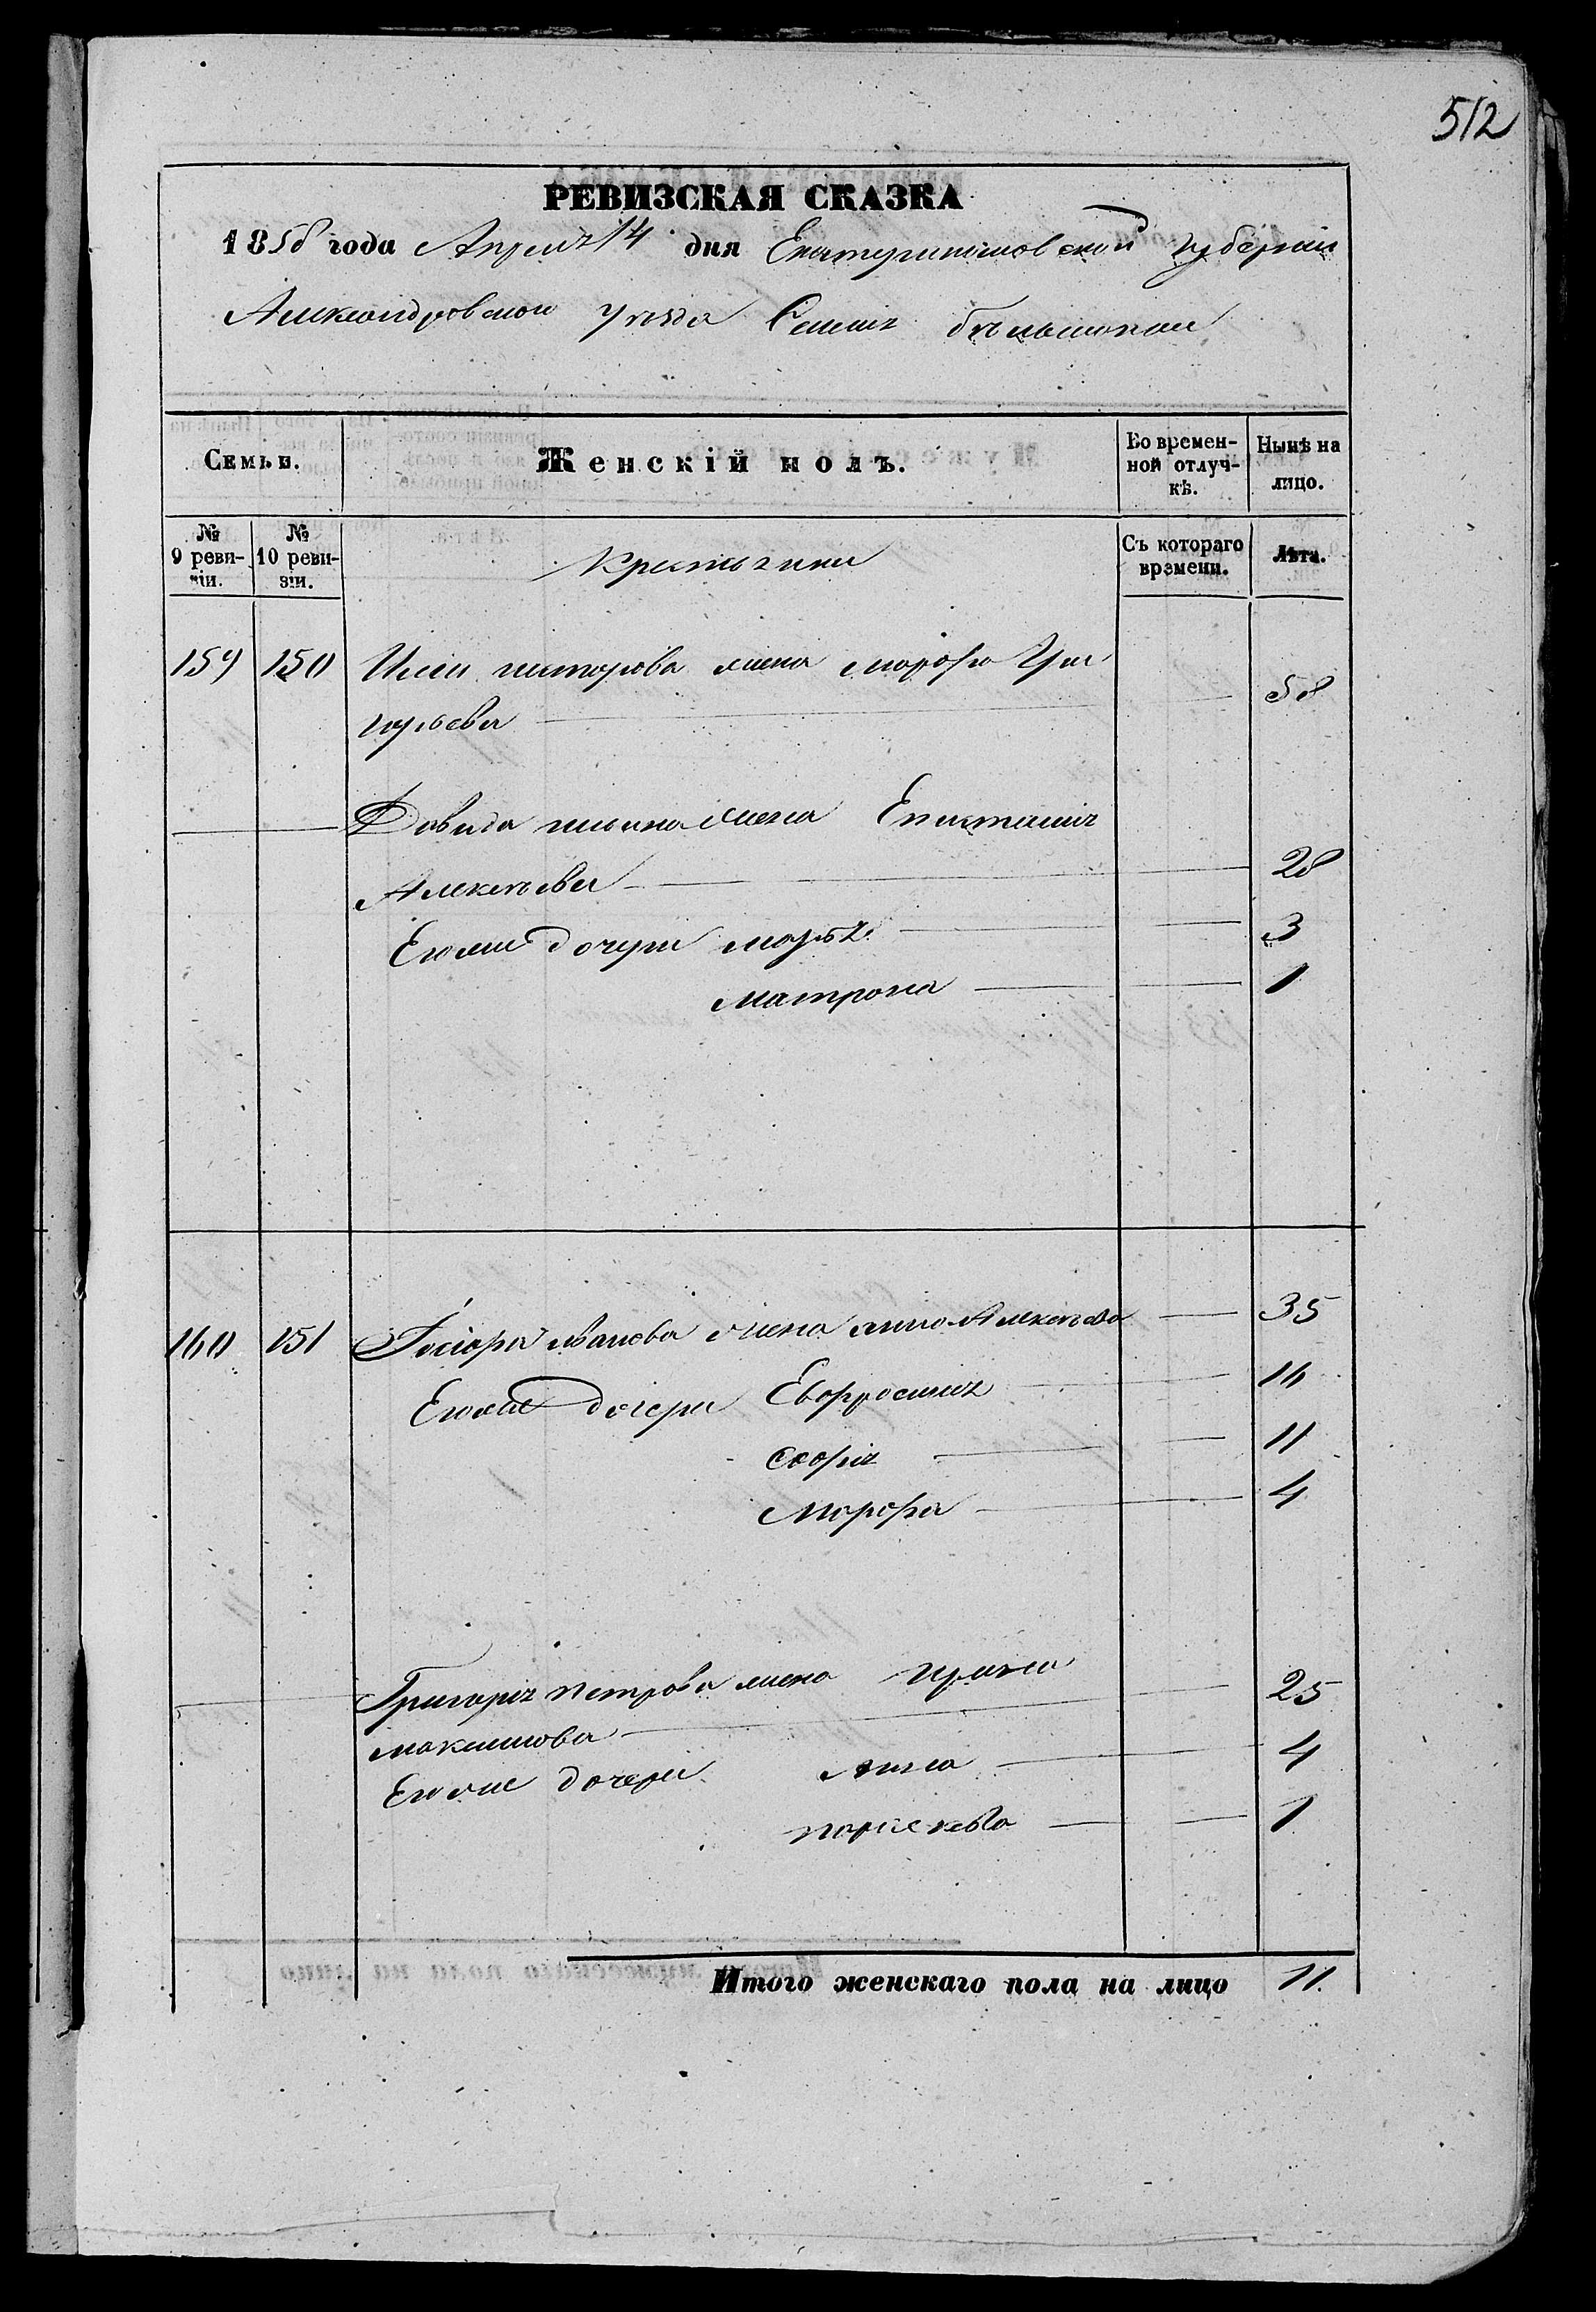 512
РЕВИЗСКАЯ СКАЗКА
1858 года Апреля 14 дня Екатеринославской губернии
Александровскои уезда Селения
Семьи.
Женскій полъ.
Во времен-
ной отлуч-
кѣ.
Нынѣ на
лицо.
№
9 реви-
зіи.
№
10 реви-
зіи.
Съ котораго
времени.
Лѣта.
159 150 жена марфа Гри
горьева 58
Давида ильина жена
Алексеева 28
Его же дочери марья 3
матрона 1
160 151 иванова жена анна Алексеева 35
Его же дочери Евфросиния 16
софия 11
марфа 4
Григория петрова жена ирина
максимова 25
Его же дочери анна 4
парасковa 1
Итого женскаго пола на лицо 11.